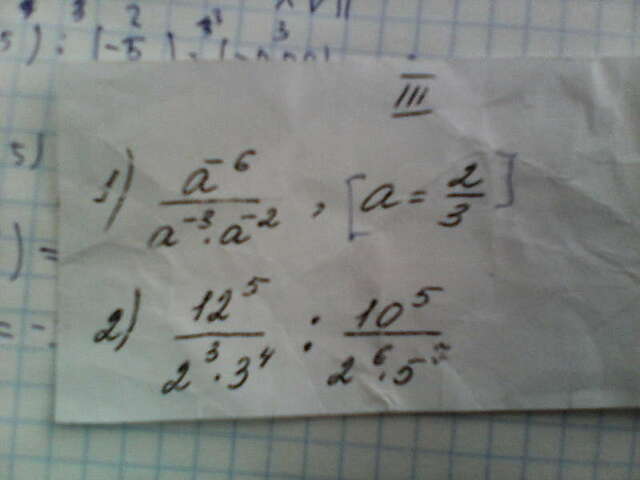 III
1) a⁻⁶ / (a⁻³ · a⁻²), [a = 2/3]
2) 12⁵ / (2³ · 3⁴) : 10⁵ / (2⁶ · 5
5)
) =
= -